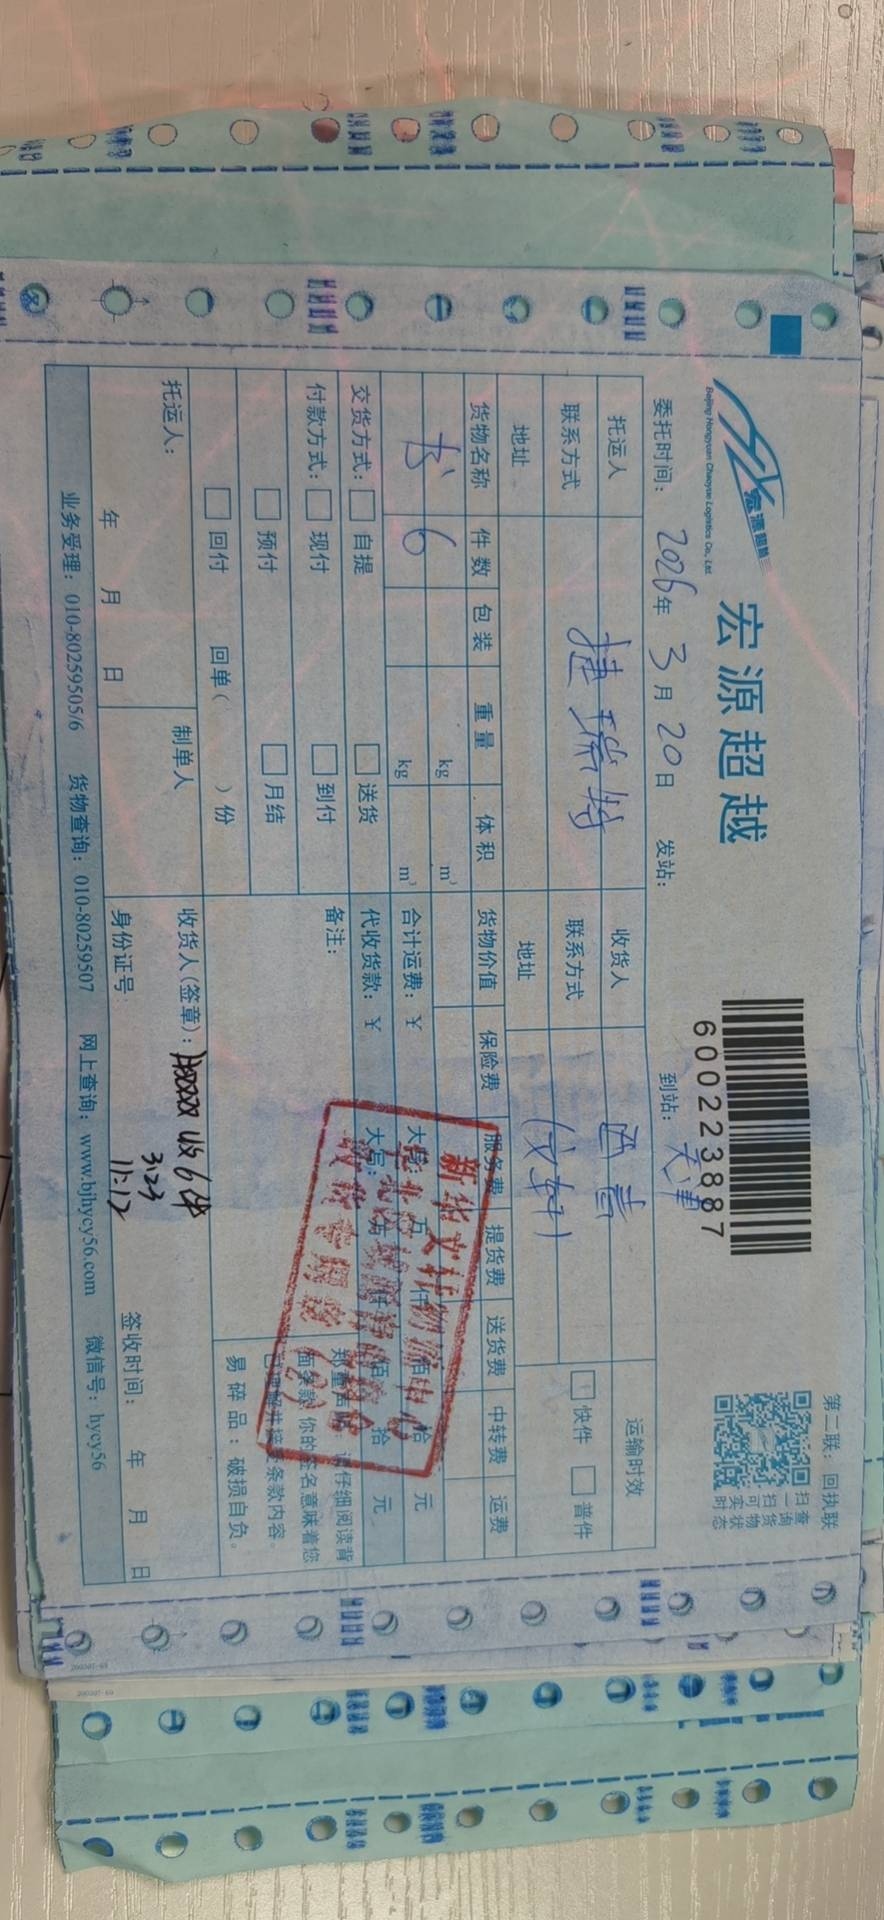 宏源超越
Beijing Hongyuan Chaoyue Logistics Co., Ltd.
宏源超越
6000223887
第二联：回执联
扫一扫可实时
查询货物状态
委托时间：2026年3月20日 发站： 到站：天津
托运人 捷瑞特 收货人 运输时效
联系方式 联系方式 快件 普件
地址 地址 (文轩)
货物名称 件数 包装 重量 体积 货物价值 保险费 服务费 提货费 送货费 中转费 运费
书 6 kg m³
kg m³ 合计运费：¥ 大写： 万 仟 佰 拾 元
交货方式： 自提 送货 代收货款：¥ 大写： 万 仟 佰 拾 元
付款方式： 现付 到付 备注：
预付 月结
回付 回单（ ）份
郑重声明：请仔细阅读背
面条款，你的签名意味着您
已理解并接受条款内容。
易碎品：破损自负。
新华文轩物流中心
收货专用章
托运人： 制单人 收货人(签章)： 收6件
3.23
11:12
年 月 日 身份证号 签收时间： 年 月 日
业务受理：010-80259505/6 货物查询：010-80259507 网上查询：www.bjhycy56.com 微信号：hycy56